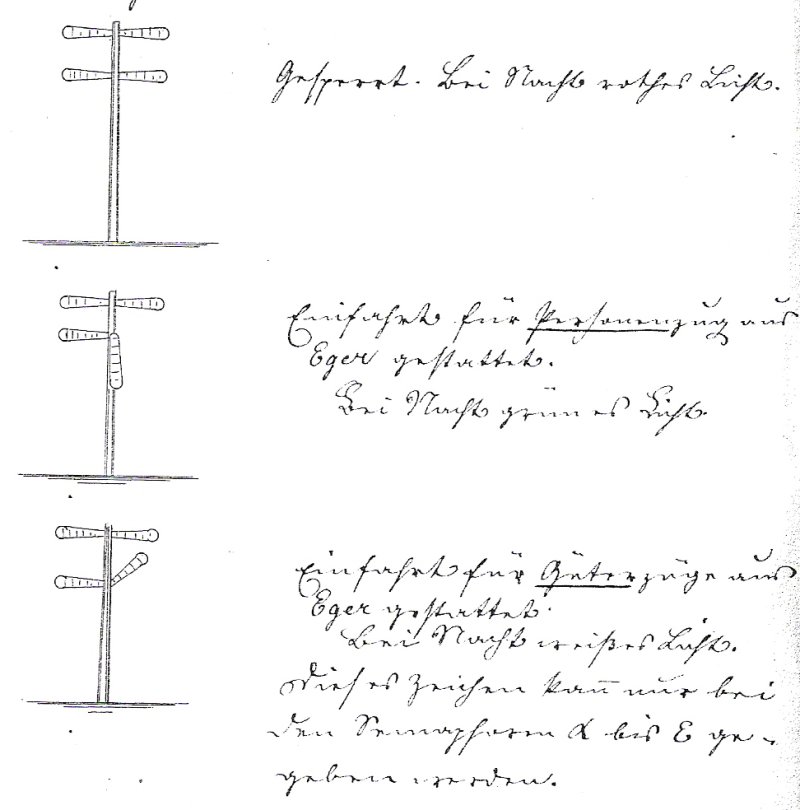 Gesperrt. Bei Nacht rothes Licht.
Einfahrt für Personenzug aus
Eger gestattet.
Bei Nacht grünes Licht.
Einfahrt für Güterzüge aus
Eger gestattet.
Bei Nacht weißes Licht.
Dieses Zeichen kan̅ nur bei
den Semaphoren A bis E ge-
geben werden.